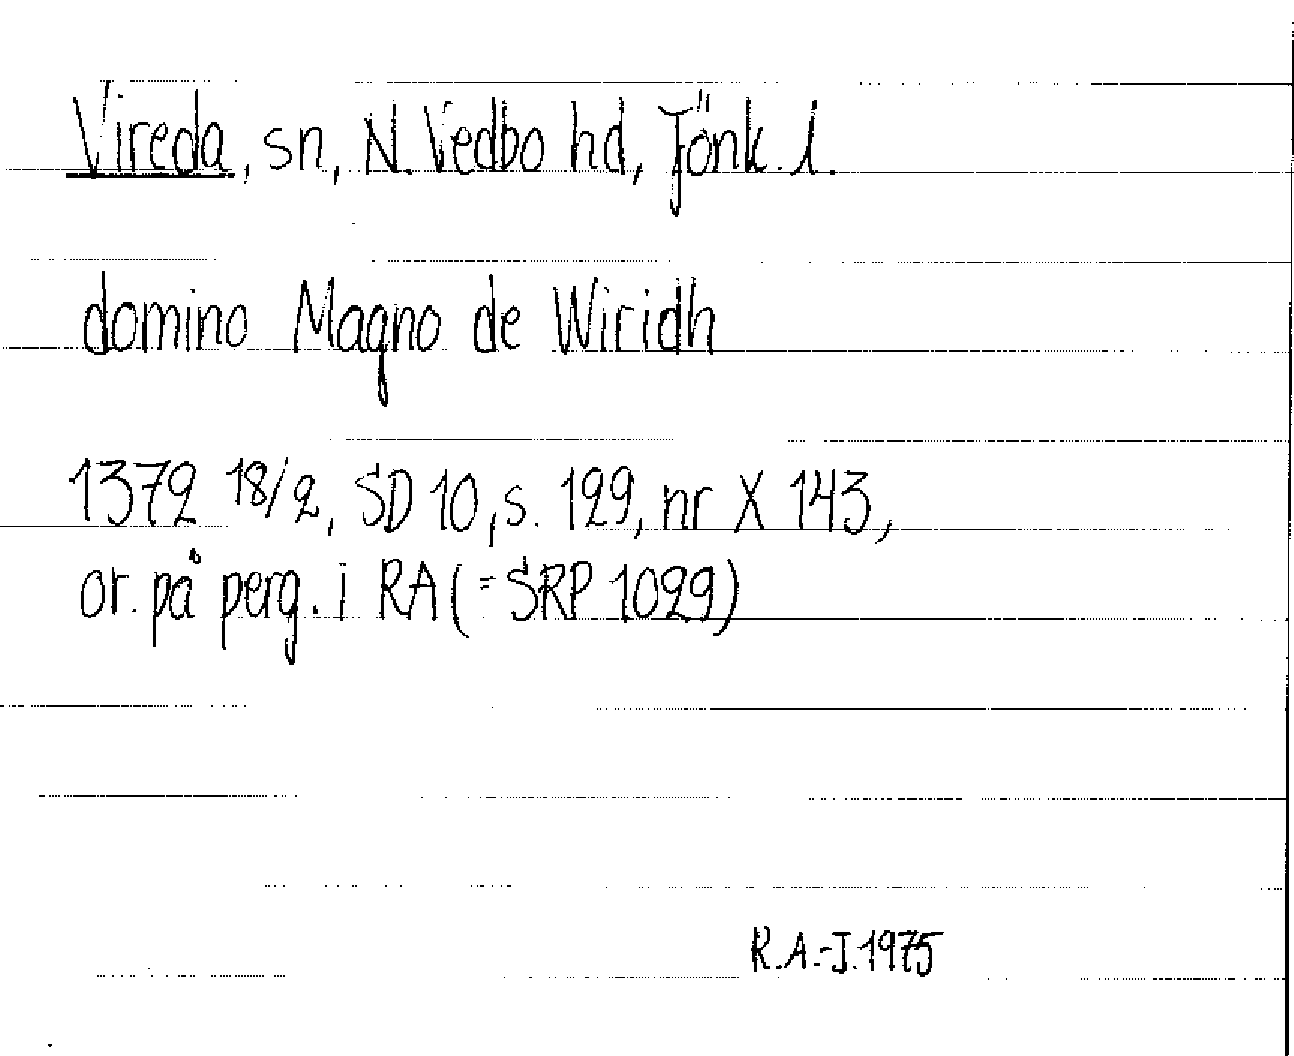 Vireda, sn, N. Vedbo hd, Jönk. l.
domino Magno de Wiridh
1372 18/2, SD 10, s. 129, nr X 143,
or. på perg. i RA (= SRP 1029)
R.A.-J. 1975